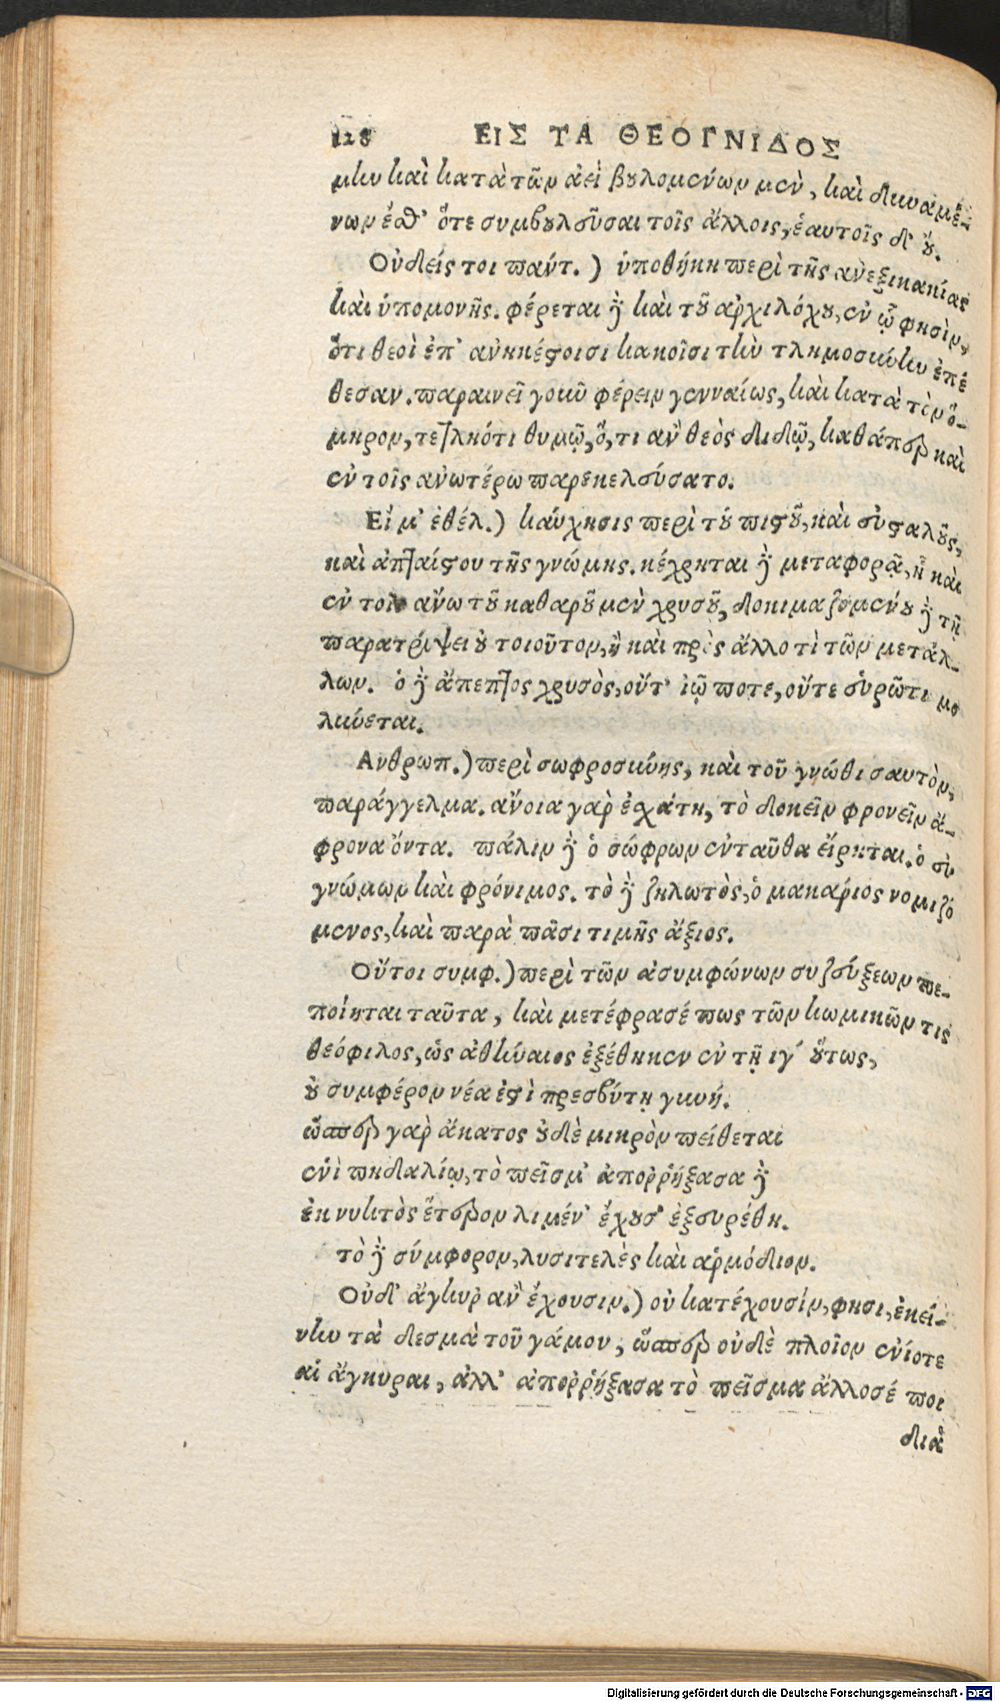 128 ΕΙΣ ΤΑ ΘΕΟΓΝΙΔΟΣ
μὴν καὶ κατὰ τῶν ἀεὶ βουλομένων μὲν, καὶ δυναμέ-
νων ἔσθ' ὅτε συμβουλεῦσαι τοῖς ἄλλοις, ἑαυτοῖς δ' οὔ.
Οὐδείς τοι παντ.) ὑποθήκη περὶ τῆς ἀνεξικακίας
καὶ ὑπομονῆς. φέρεται δὲ καὶ τοῦ ἀρχιλόχου, ἐν ᾧ φησὶν,
ὅτι θεοὶ ἐπ' ἀνηκέστοισι κακοῖσι τὴν τλημοσύνην ἐπέ
θεσαν. παραινεῖ γοῦν φέρειν γενναίως, καὶ κατὰ τὸν ὅ-
μηρον, τετληκότι θυμῷ, ὅ, τι ἂν θεὸς διδῷ, καθάπερ καὶ
ἐν τοῖς ἀνωτέρω παρεκελεύσατο.
Εἴ μ' ἐθέλ.) καύχησις περὶ τοῦ πιστοῦ, καὶ εὐσταλοῦς,
καὶ ἀπταίστου τῆς γνώμης. κέχρηται δὲ μεταφορᾷ, ᾗ καὶ
ἐν τοῖς ἄνω τοῦ καθαροῦ μὲν χρυσοῦ, δοκιμαζομένου δὲ τῇ
παρατρίψει οὐ τοιοῦτον, ἢ καὶ πρὸς ἄλλο τὶ τῶν μετάλ-
λων. ὁ δὲ ἄπεπτος χρυσὸς, οὔτ' ἰῷ ποτε, οὔτε εὐρῶτι μο
λύνεται.
Ανθρωπ.) περὶ σωφροσύνης, καὶ τοῦ γνῶθι σαυτὸν,
παράγγελμα. ἄνοια γὰρ ἐσχάτη, τὸ δοκεῖν φρονεῖν ἄ-
φρονα ὄντα. πάλιν δὲ ὁ σώφρων ἐνταῦθα εἴρηται. ὁ εὐ
γνώμων καὶ φρόνιμος. τὸ δὲ ζηλωτὸς, ὁ μακαρίος νομιζό
μενος, καὶ παρὰ πᾶσι τιμῆς ἄξιος.
Οὔτοι συμφ.) περὶ τῶν ἀσυμφώνων συζεύξεων πε-
ποίηται ταῦτα, καὶ μετέφρασέ πως τῶν κωμικῶν τις
θεόφιλος, ὡς ἀθήναιος ἐξέθηκεν ἐν τῇ ιγ' οὕτως,
οὐ συμφέρον νέα ἐστὶ πρεσβύτῃ γυνή.
ὥσπερ γὰρ ἄκατος οὐδὲ μικρὸν πείθεται
ἑνὶ πηδαλίῳ, τὸ πεῖσμ' ἀποῤῥήξασα δὲ
ἐκ νυκτὸς ἕτερον λιμέν' ἔχουσ' ἐξευρέθη.
τὸ δὲ σύμφορον, λυσιτελὲς καὶ ἁρμόδιον.
Οὐδ' ἄγκυρ ἂν ἔχουσιν.) οὐ κατέχουσίν, φησι, ἐκεί-
νην τὰ δεσμὰ τοῦ γάμου, ὥσπερ οὐδὲ πλοῖον ἐνίοτε
αἱ ἄγκυραι, ἀλλ' ἀποῤῥήξασα τὸ πεῖσμα ἄλλοσέ ποι
διὰ
Digitalisierung gefördert durch die Deutsche Forschungsgemeinschaft - DFG